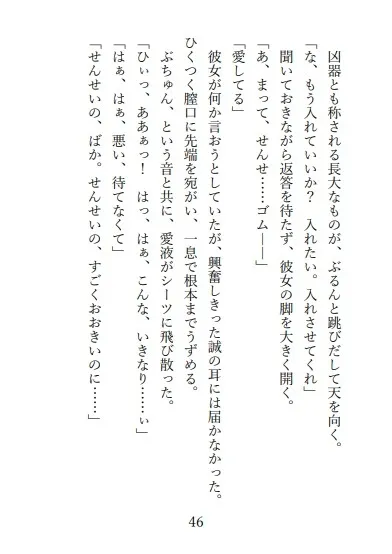 凶器とも称される長大なものが、ぶるんと跳びだして天を向く。
「な、もう入れていいか？　入れたい。入れさせてくれ」
聞いておきながら返答を待たず、彼女の脚を大きく開く。
「あ、まって、せんせ……ゴム――」
「愛してる」
彼女が何か言おうとしていたが、興奮しきった誠の耳には届かなかった。
ひくつく膣口に先端を宛がい、一息で根本までうずめる。
ぶちゅん、という音と共に、愛液がシーツに飛び散った。
「ひぃっ、ああぁっ！　はっ、はぁ、こんな、いきなり……ぃ」
「はぁ、はぁ、悪い、待てなくて」
「せんせいの、ばか。せんせいの、すごくおおきいのに……」
46